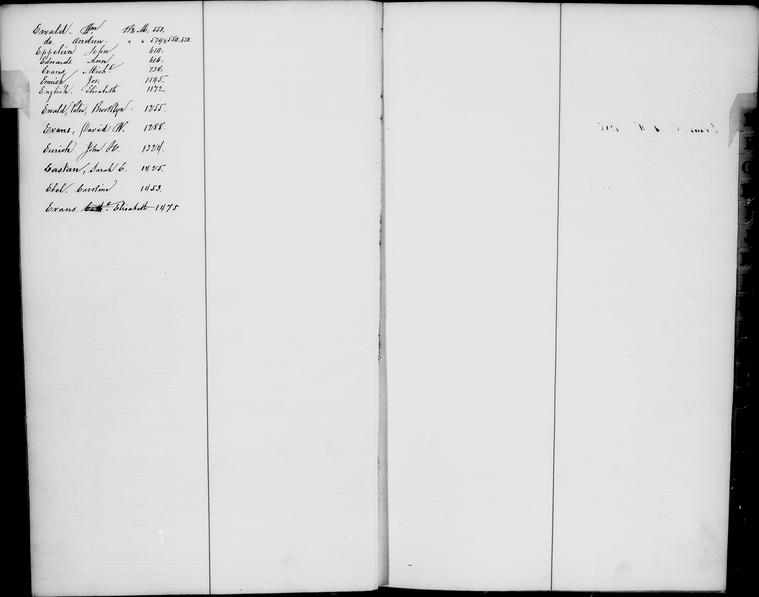 Ewald. Wm Bk M. 551.
do Andrew. " " 579 & 580. 520.
Eppelein John 610.
Edwards Ann 616.
Evans, Michl 734.
Jos: 1145.
English. Elizabeth 1172
Ewald, Peter, Brooklyn. 1255.
Evans, David W. 1288.
Eurich John 1324.
Eastan, Sarah E. 1425.
Ebel. Caroline 1453.
Evans. Elizabeth 1475